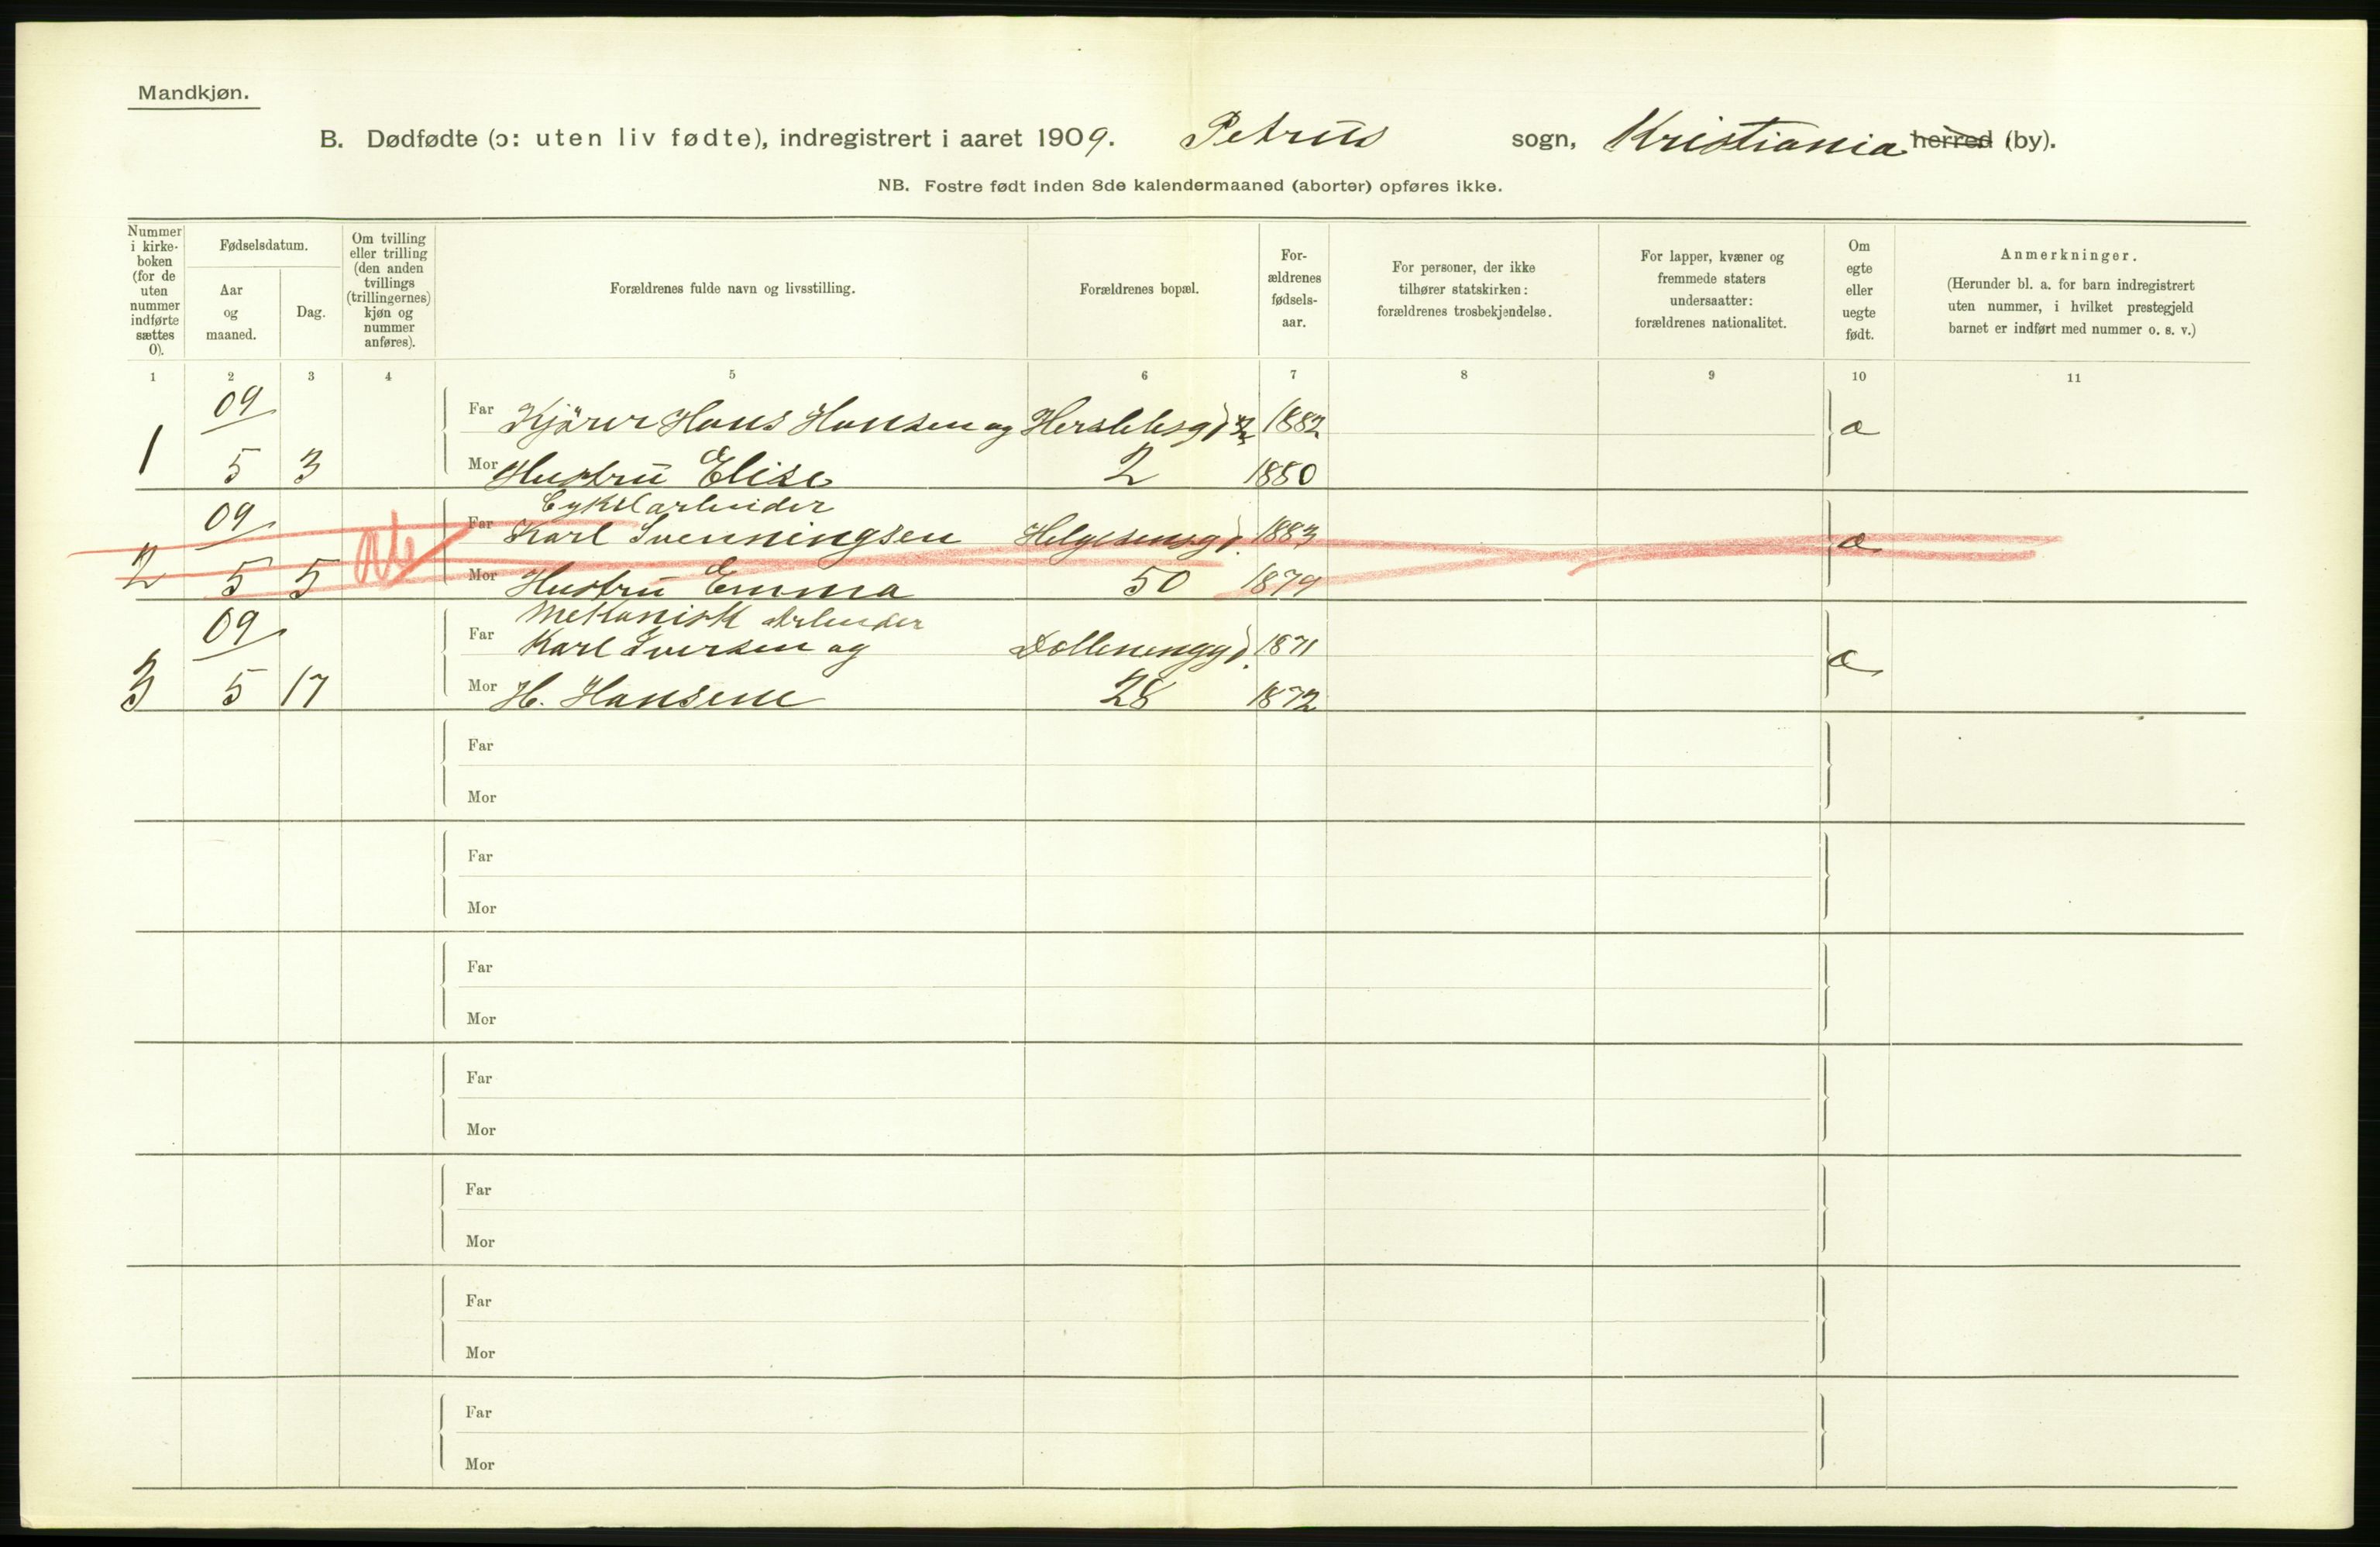 Mandkjøn.
B. Dødfødte (ɔ: uten liv fødte), indregistrert i aaret 1909. Petrus sogn, Kristiania herred (by).
NB. Fostre født inden 8de kalendermaaned (aborter) opføres ikke.
Nummer i kirke-boken (for de uten nummer indførte sættes 0).
Fødselsdatum.
Aar og maaned.
Dag.
Om tvilling eller trilling (den anden tvillings (trillingernes) kjøn og nummer anføres).
Forældrenes fulde navn og livsstilling.
Forældrenes bopæl.
For-ældrenes fødsels-aar.
For personer, der ikke tilhører statskirken: forældrenes trosbekjendelse.
For lapper, kvæner og fremmede staters undersaatter: forældrenes nationalitet.
Om egte eller uegte født.
Anmerkninger.
(Herunder bl. a. for barn indregistrert uten nummer, i hvilket prestegjeld barnet er indført med nummer o. s. v.)
1 2 3 4 5 6 7 8 9 10 11
09
Far Kjörer Hans Hansen og Herslebsgd 1882 a
1 5 3 Mor Hustru Elise 2 1880
Cykelarbeider
09 Far Karl Svenningsen Helgesensgd. 1883 a
2 5 5 Mor Hustru Emma 50 1879
Mekanisk Arbeider
09 Far Karl Iversen og 1871 a
3 5 17 Mor H. Hansene 28 1872
Far
Mor
Far
Mor
Far
Mor
Far
Mor
Far
Mor
Far
Mor
Far
Mor